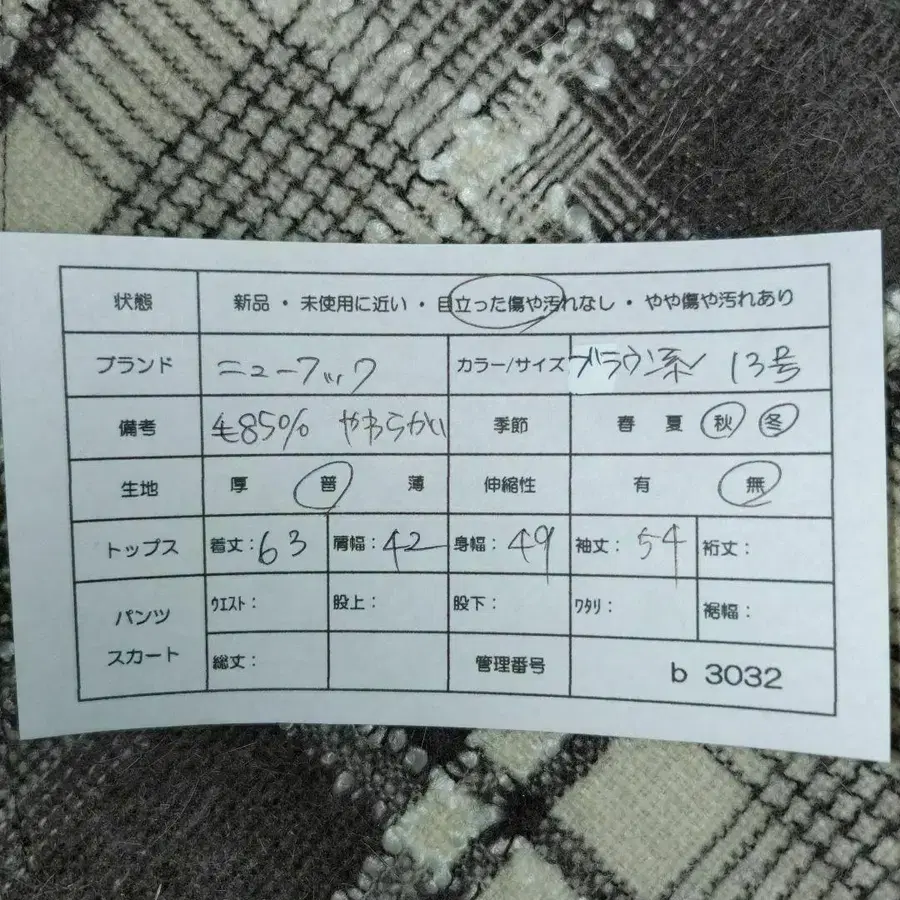 状態 新品・未使用に近い・目立った傷や汚れなし・やや傷や汚れあり
ブランド ニューフック カラー/サイズ ブラウン系 13号
備考 毛85% やわらかい 季節 春 夏 秋 冬
生地 厚 普 薄 伸縮性 有 無
トップス 着丈：63 肩幅：42 身幅：49 袖丈：54 裄丈：
パンツ ｳｴｽﾄ： 股上： 股下： ﾜﾀﾘ： 裾幅：
スカート 総丈： 管理番号 b 3032